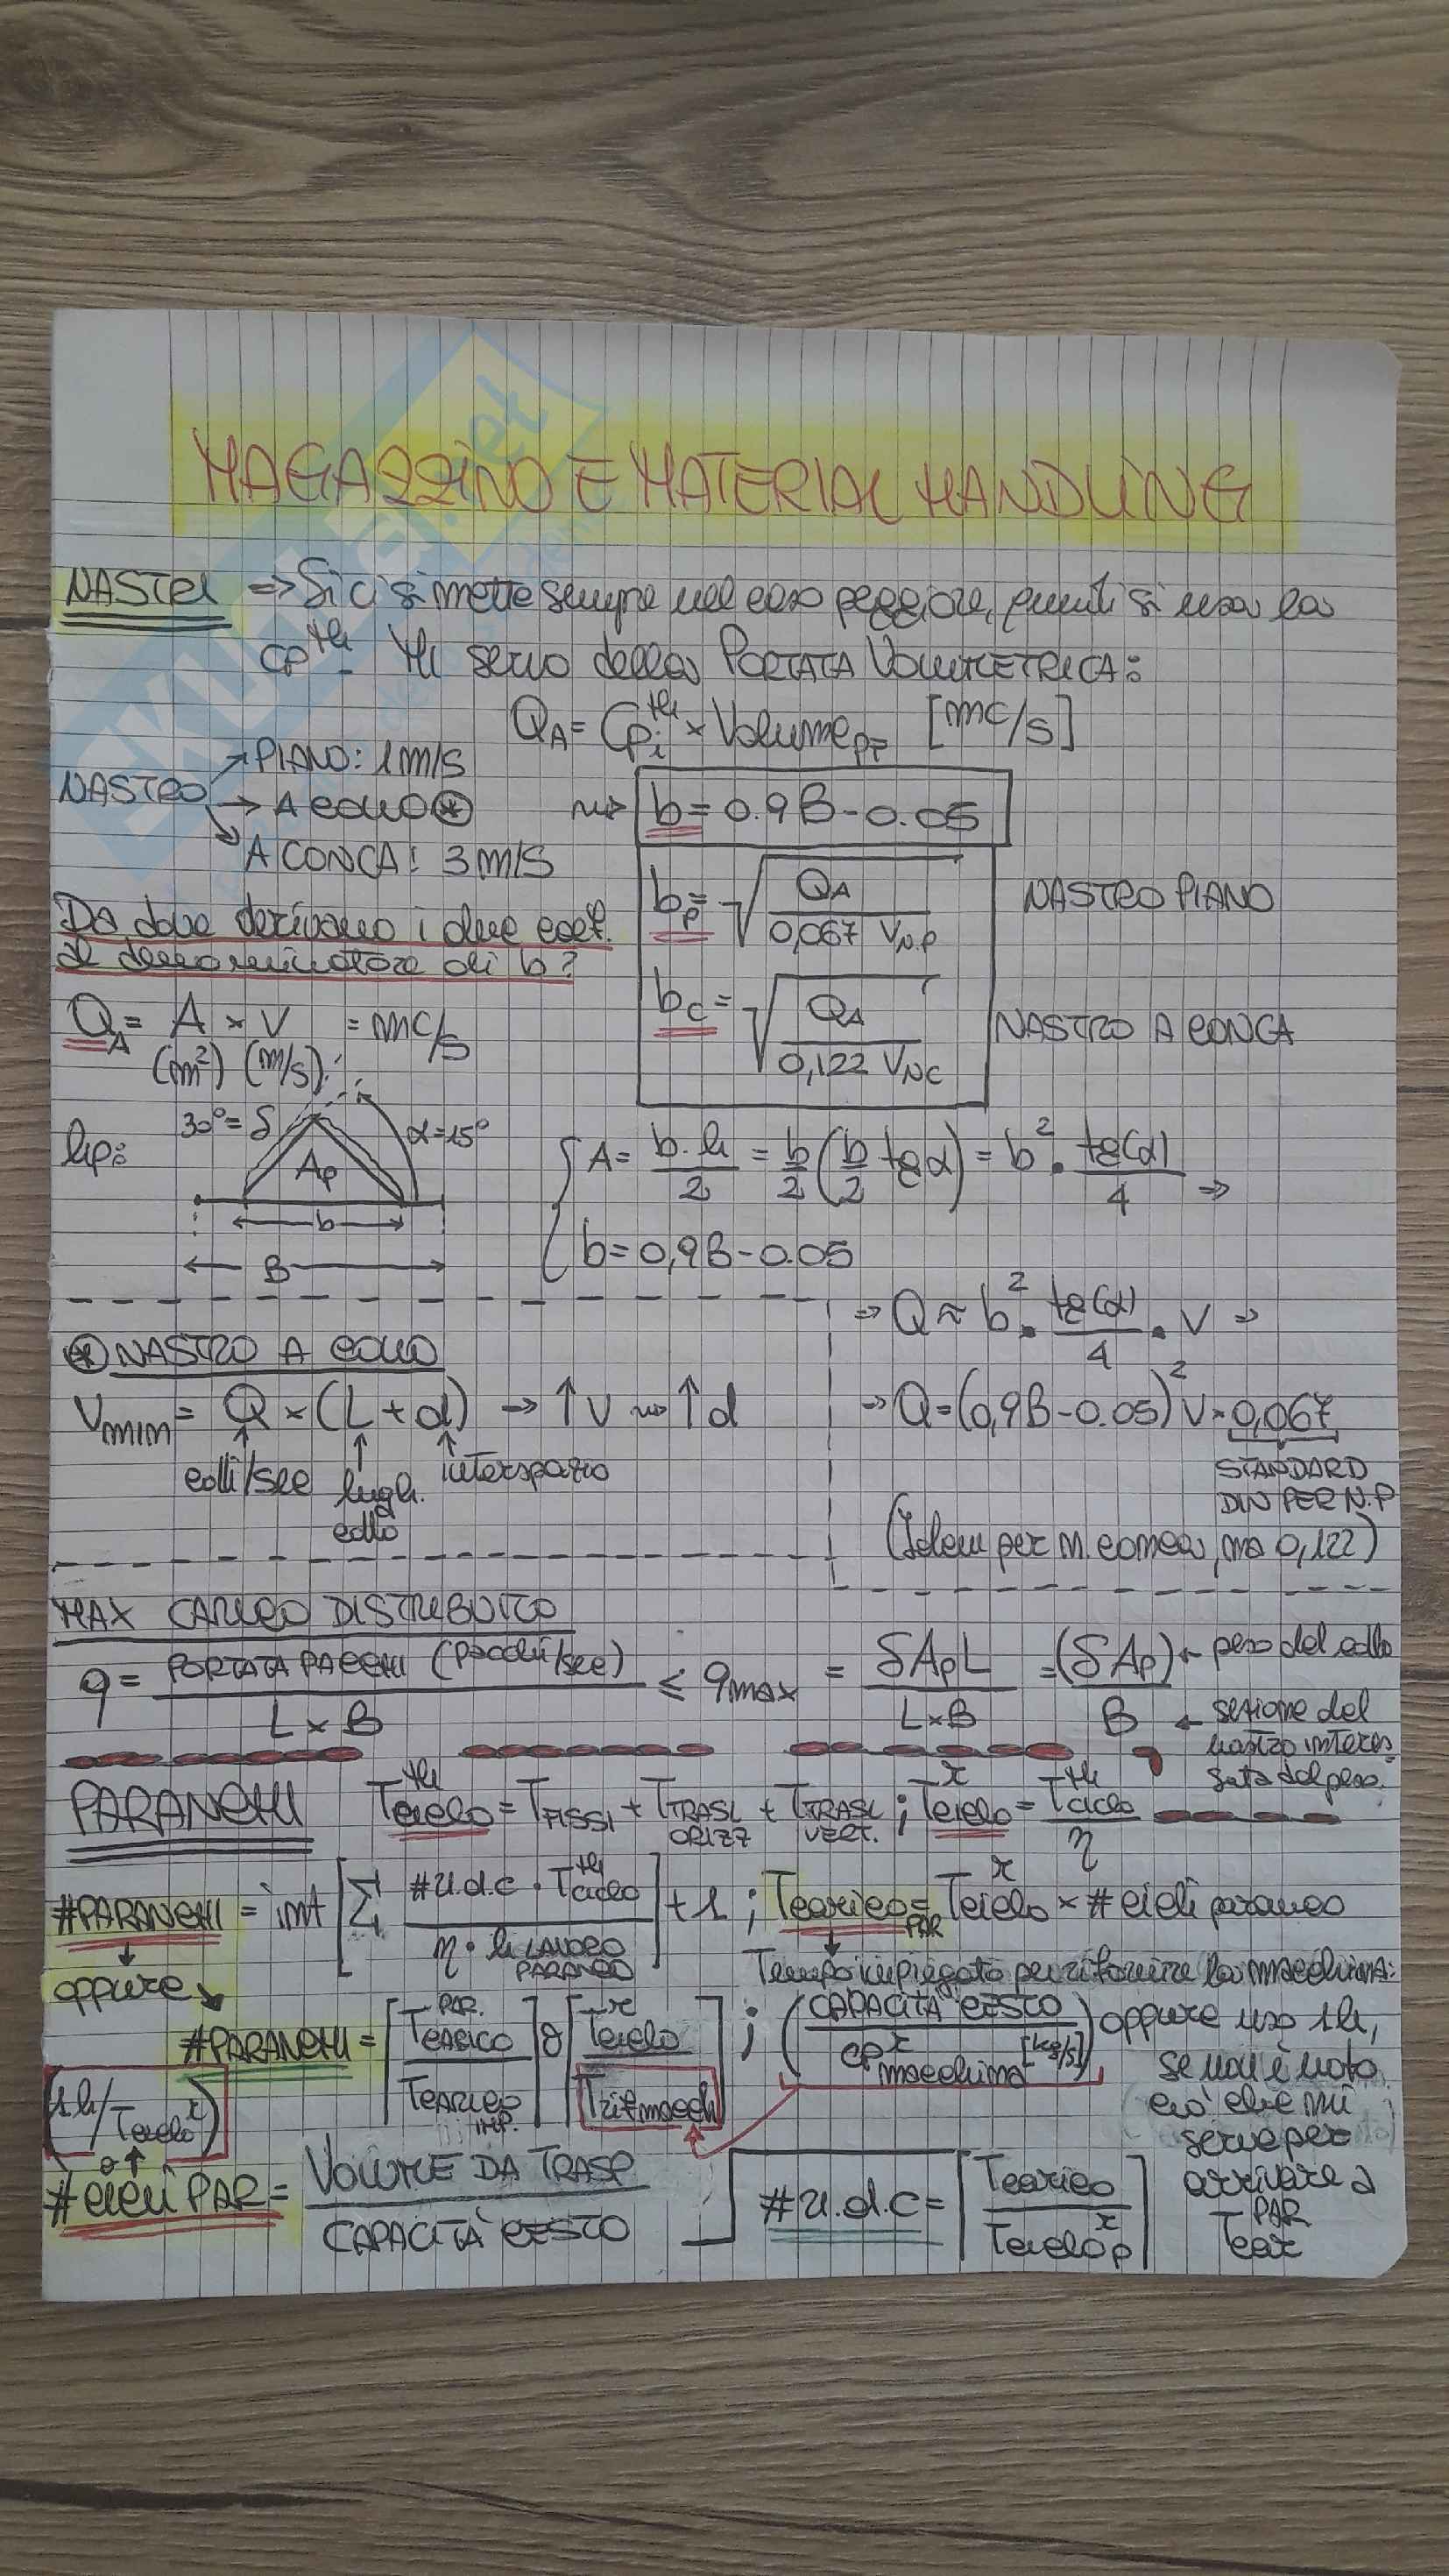 MAGAZZINO E MATERIAL HANDLING
NASTRI => Si ci si mette sempre nel caso peggiore, quindi si usa la
cp^th. Mi servo della PORTATA VOLUMETRICA:
Q_A = Cp_i^th × Volume_PF [mc/s]
NASTRO → PIANO: 1 m/s
→ A COLLO ⊛
→ A CONCA: 3 m/s
b = 0.9B - 0.05
b_p = √(Q_A / 0,067 V_N.P) NASTRO PIANO
b_c = √(Q_A / 0,122 V_NC) NASTRO A CONCA
Da dove derivano i due coef.
al denominatore di b?
Q_A = A × V = mc/s
(m²) (m/s)
Hp: 30° = δ α = 15°
A_p
b
B
A = b·h/2 = b/2 (b/2 tgα) = b² · tg(α)/4 =>
b = 0,9B - 0.05
=> Q ≈ b² · tg(α)/4 · V =>
=> Q = (0,9B - 0.05)² V × 0,067
STANDARD
DIN PER N.P
(Idem per n. conca, ma 0,122)
⊛ NASTRO A COLLO
V_min = Q × (L + d) → ↑V ⇝ ↑d
colli/sec lugh. collo interspazio
MAX CARICO DISTRIBUITO
q = PORTATA PACCHI (pacchi/sec) / L × B ≤ q_max = δA_pL / L×B = (δA_p) / B
← peso del collo
← sezione del
nastro interes
sata dal peso.
PARANCHI T_ciclo^th = T_FISSI + T_TRASL ORIZZ + T_TRASL VERT. ; T_ciclo^r = T_ciclo^th / η
#PARANCHI = int [Σ #u.d.c · T_ciclo^th / η · h LAVORO PARANCO] + 1 ; T_carico PAR = T_ciclo^r × # cicli paranco
oppure
Tempo impiegato per rifornire la macchina:
#PARANCHI = [T_CARICO^PAR. / T_CARICO IMP.] o [T_ciclo^r / T_rif macch] ; (CAPACITÀ CESTO / cp^r macchina [kg/s]) oppure uso 1h,
se non è noto
ciò che mi
serve per
arrivare a
T_car^PAR
(1h / T_ciclo^r)
o ↑
#CICLI PAR = VOLUME DA TRASP / CAPACITÀ CESTO
#u.d.c = [T_carico / T_ciclo p^r]